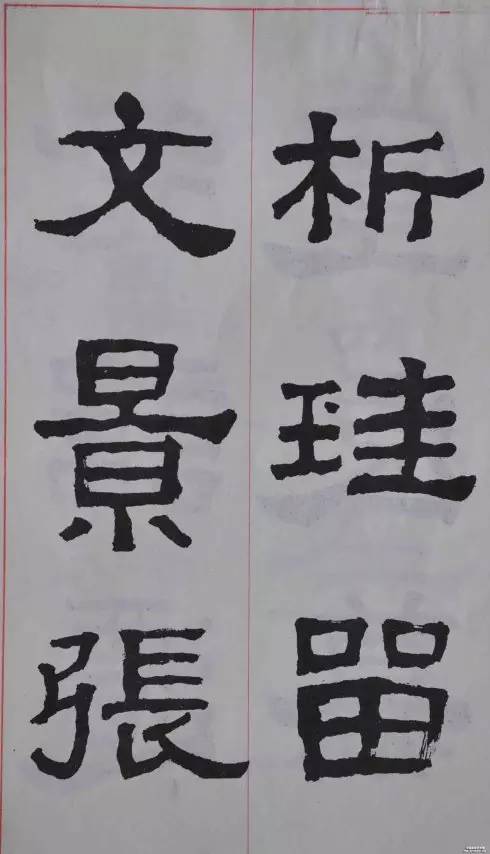 析珪㽞
文景張